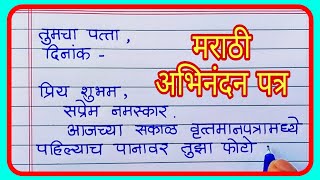 तुमचा पत्ता,
दिनांक -
मराठी
अभिनंदन पत्र
प्रिय शुभम,
सप्रेम नमस्कार.
आजच्या सकाळ वृत्तमानपत्रामध्ये
पहिल्याच पानावर तुझा फोटो